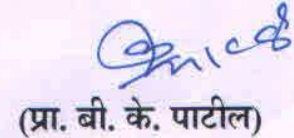 (प्रा. बी. के. पाटील)